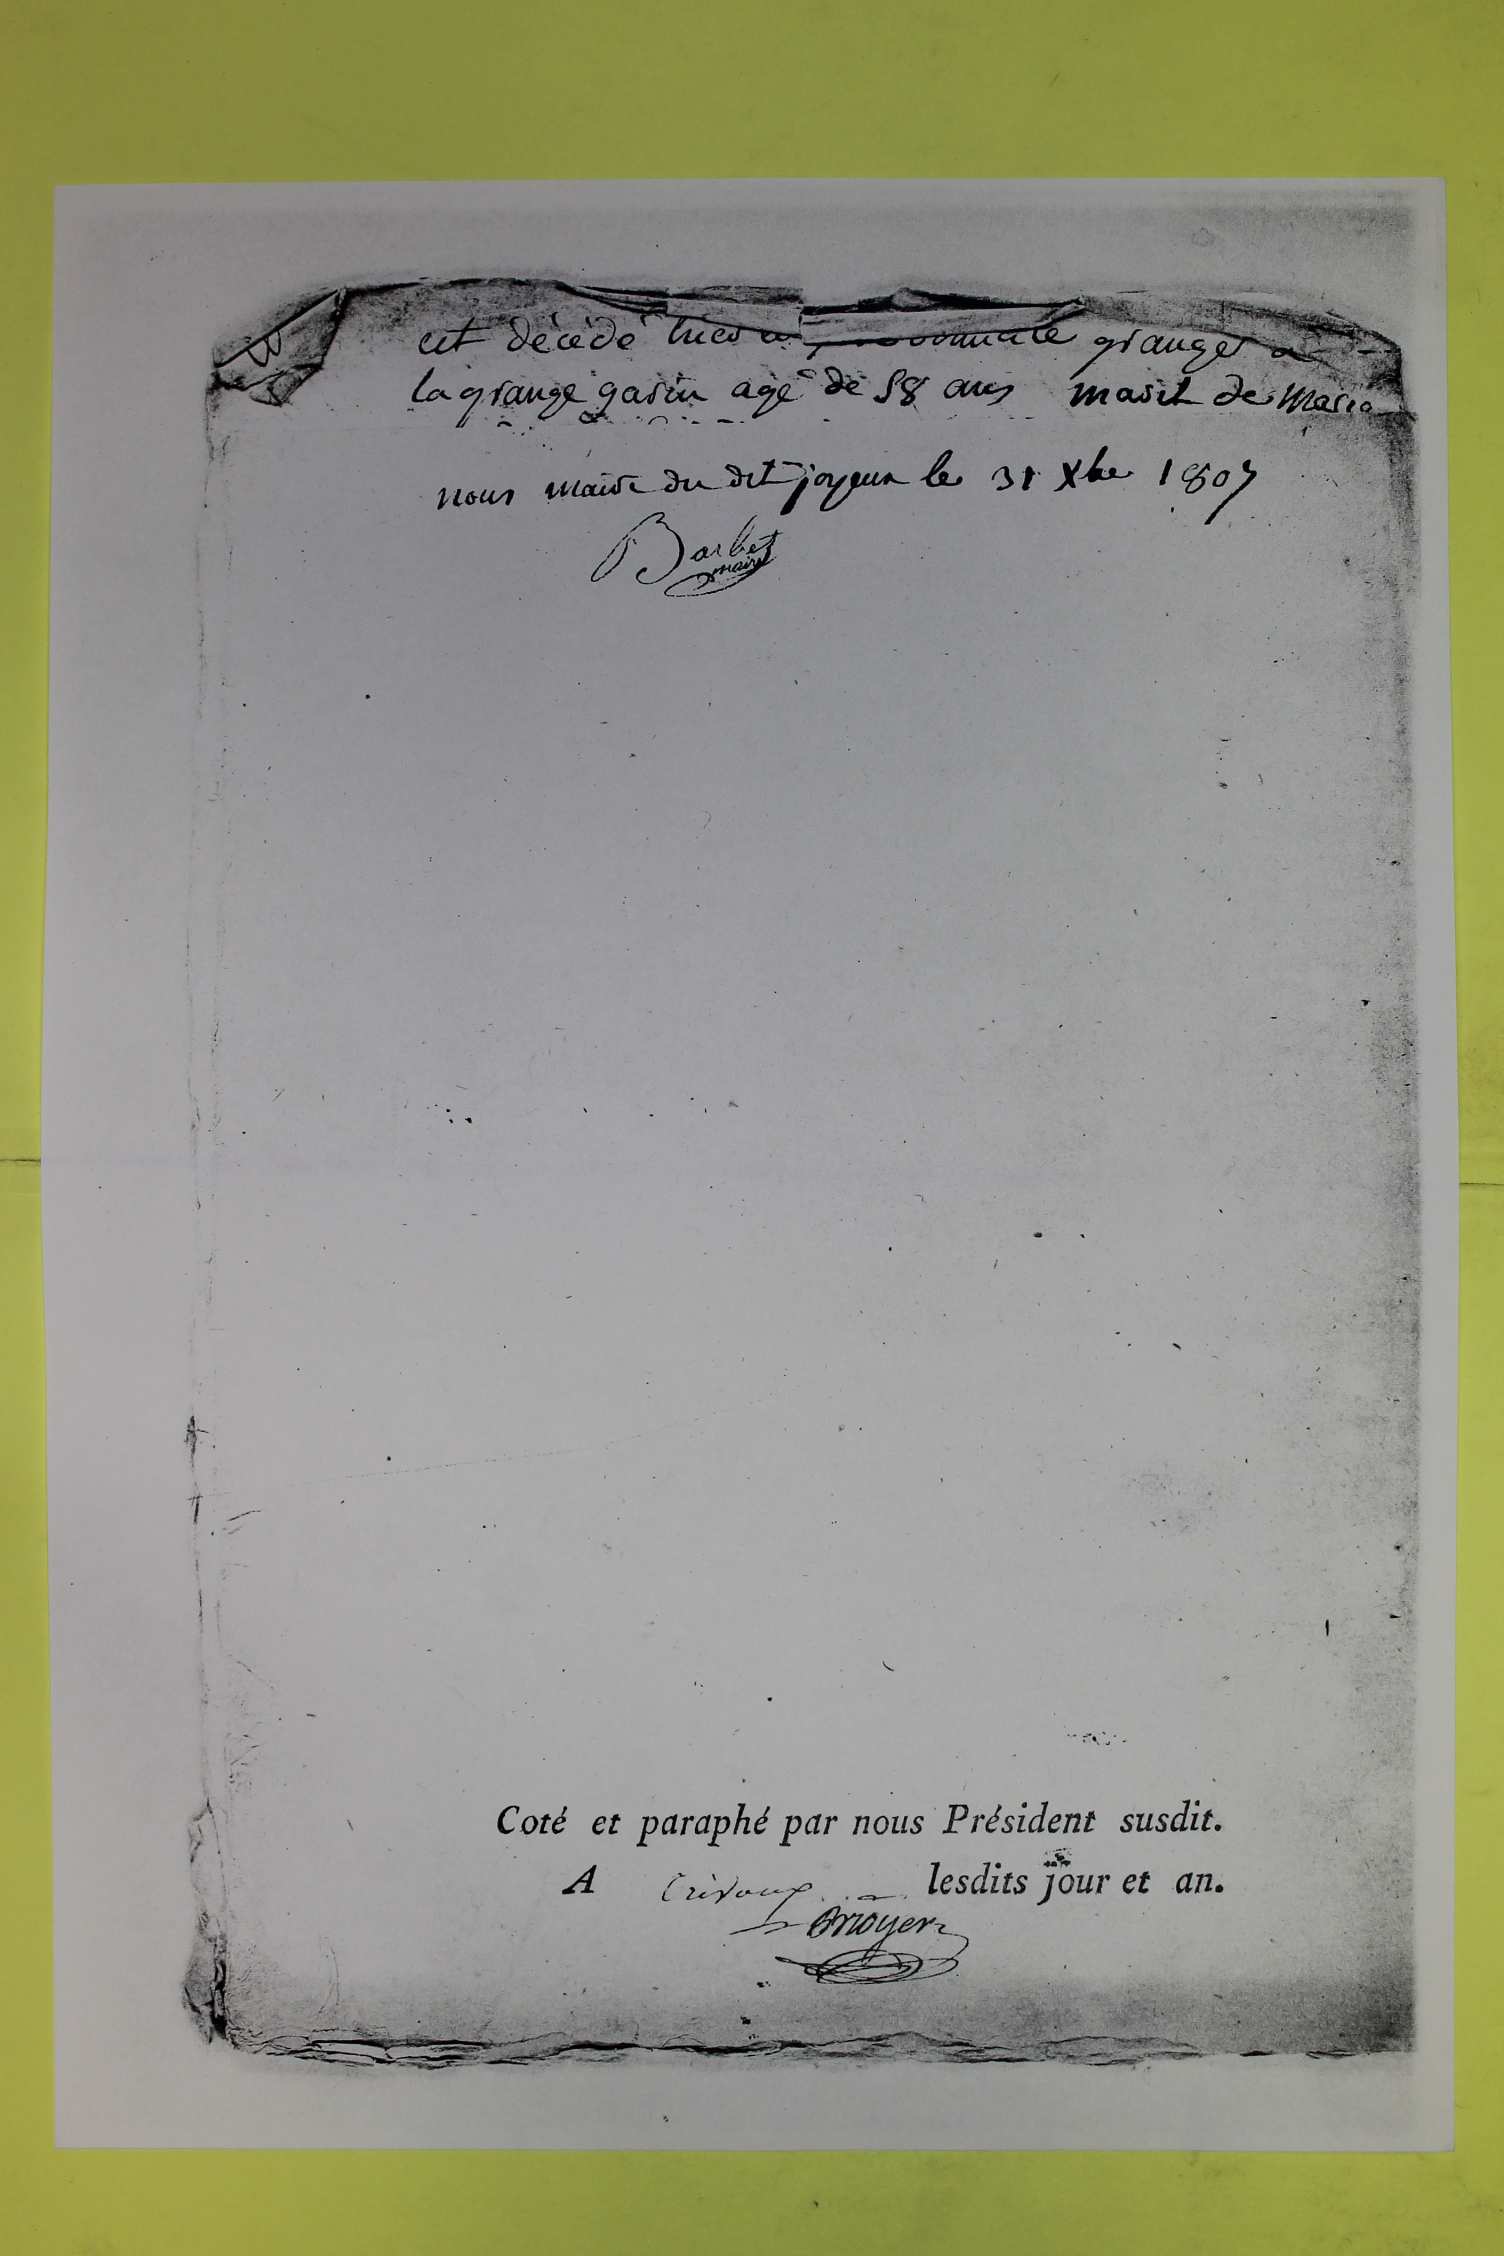 est décédé hier granger a
la grange garin agé de 58 ans marit de Maria
nous maire du dit joyeux le 31 Xbre 1807
Barbet
maire
Coté et paraphé par nous Président susdit.
A Trévoux lesdits jour et an.